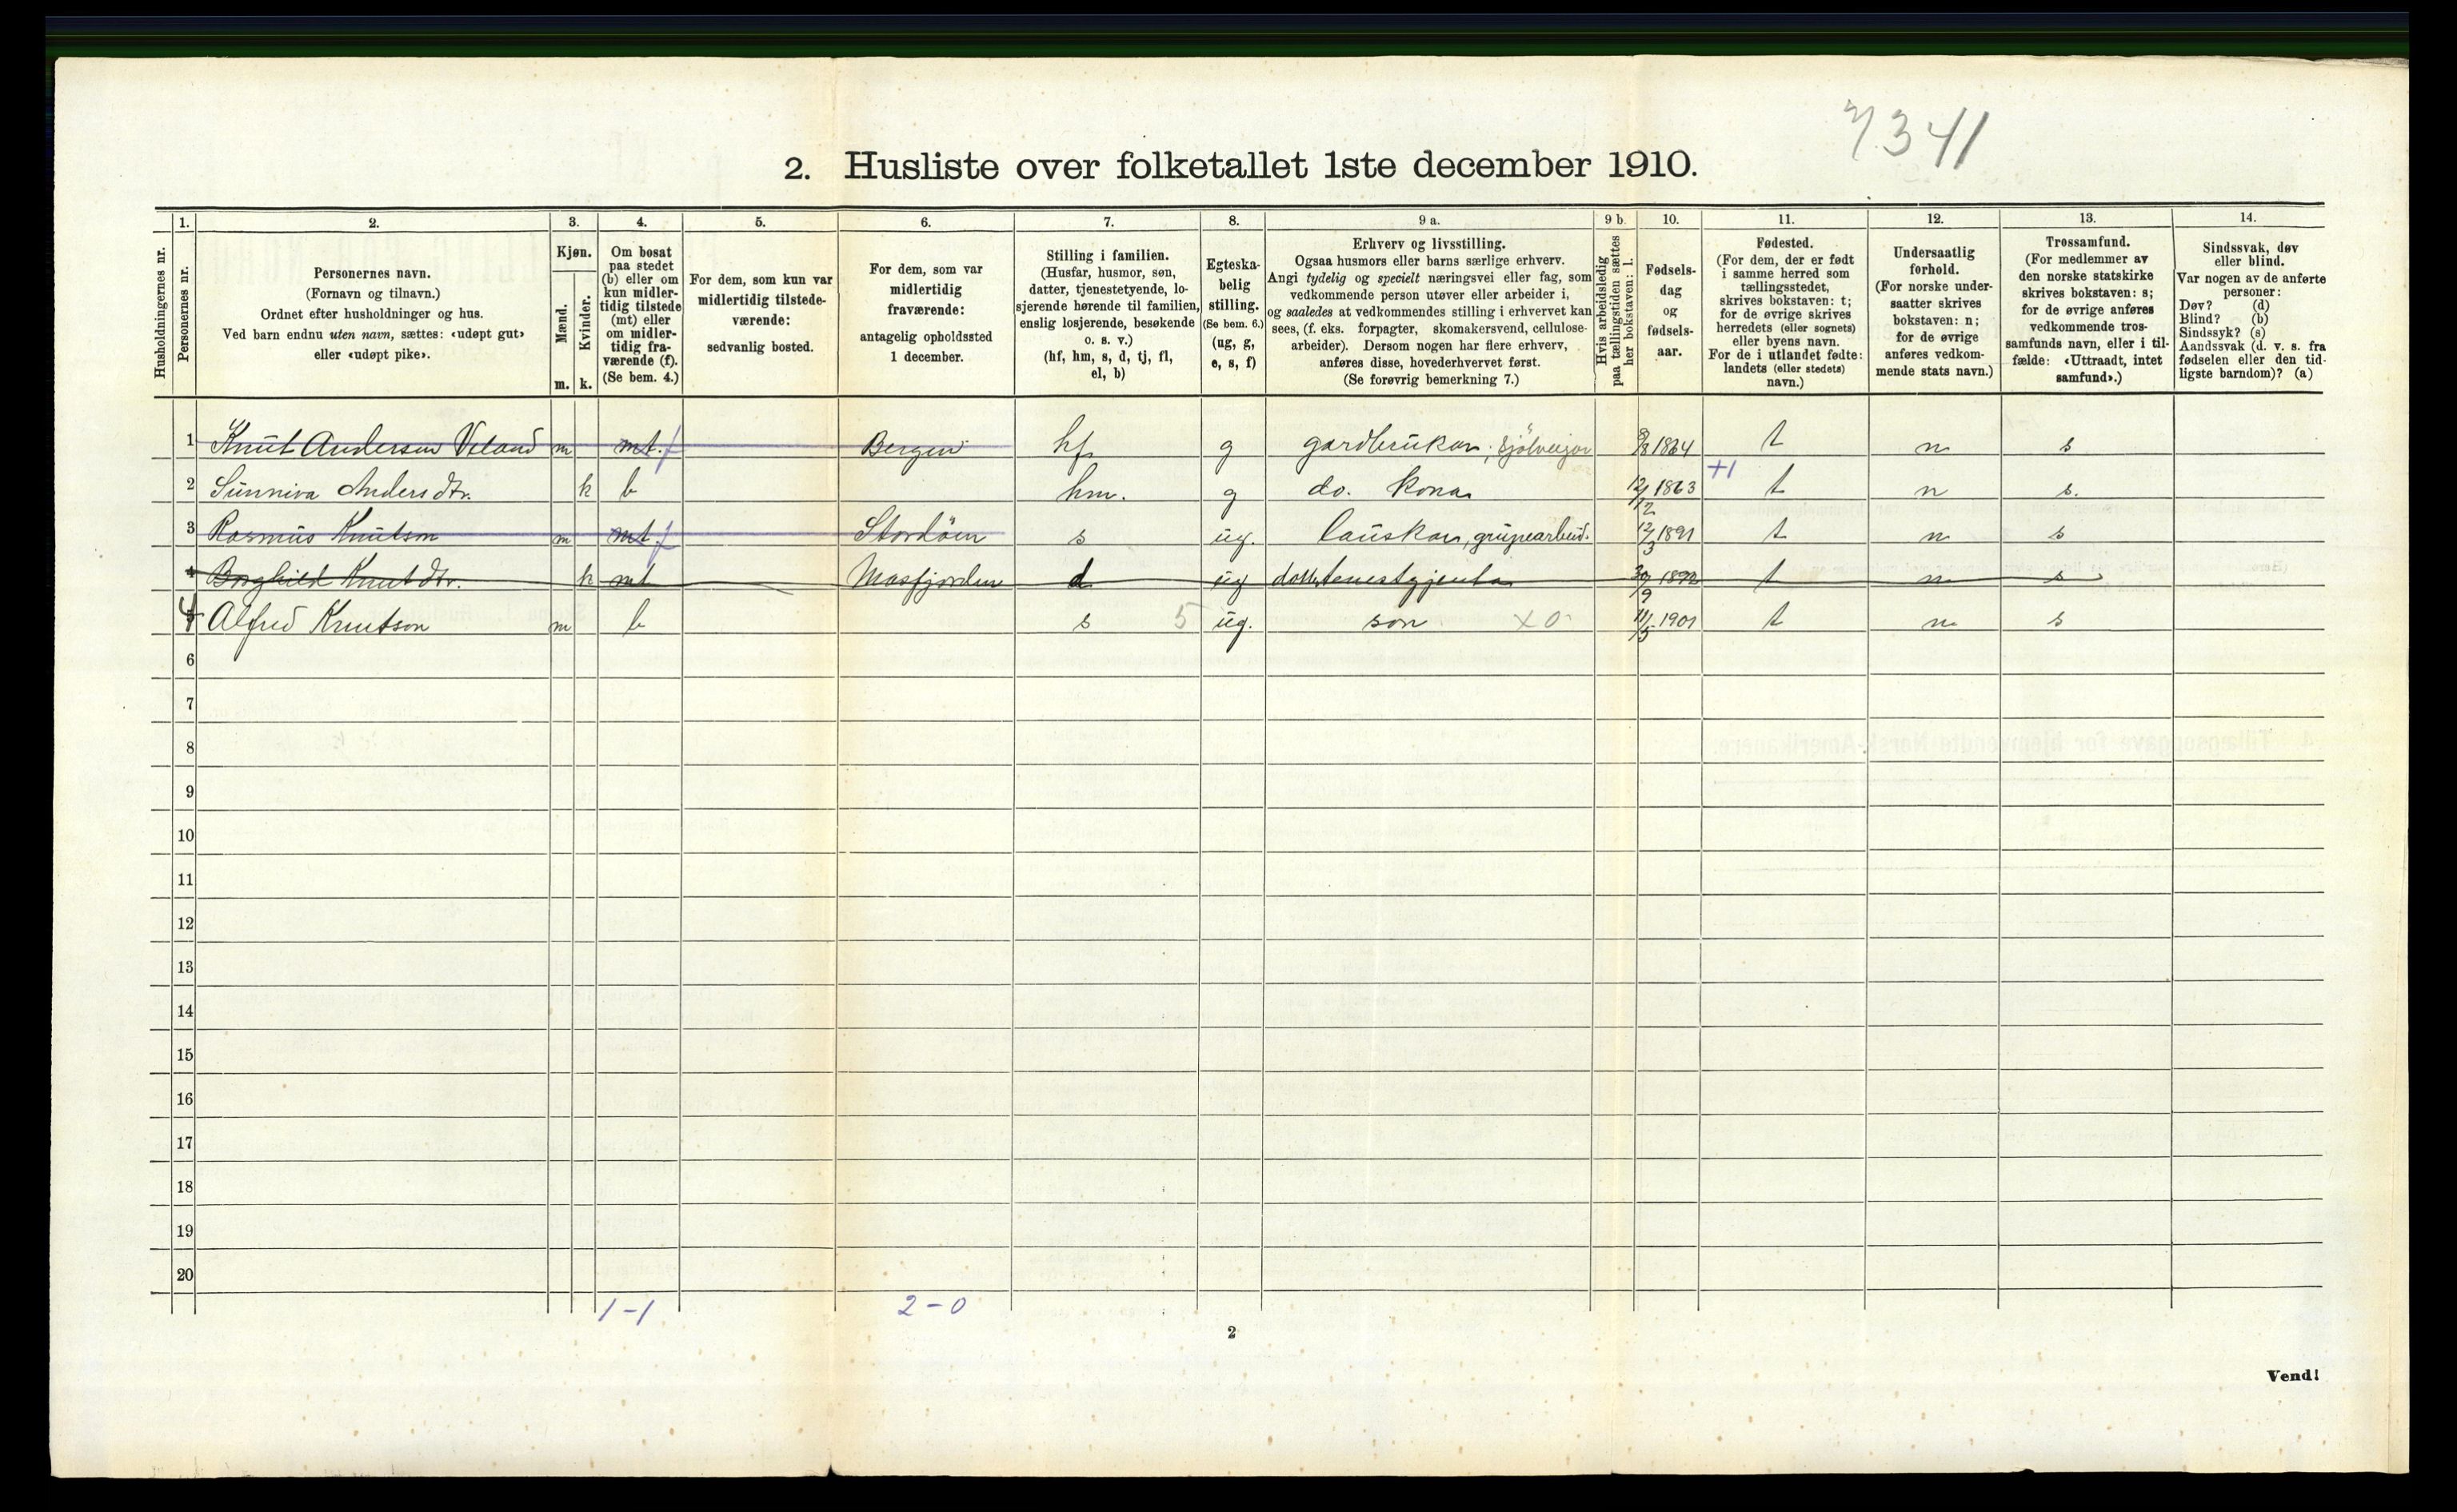 7341
2. Husliste over folketallet 1ste december 1910.
Husholdningernes nr.
1.
Personernes nr.
2.
Personernes navn.
(Fornavn og tilnavn.)
Ordnet efter husholdninger og hus.
Ved barn endnu uten navn, sættes: «udøpt gut»
eller «udøpt pike».
3.
Kjøn.
Mænd.
Kvinder.
m. k.
4.
Om bosat
paa stedet
(b) eller om
kun midler-
tidig tilstede
(mt) eller
om midler-
tidig fra-
værende (f).
(Se bem. 4.)
5.
For dem, som kun var
midlertidig tilstede-
værende:
sedvanlig bosted.
6.
For dem, som var
midlertidig
fraværende:
antagelig opholdssted
1 december.
7.
Stilling i familien.
(Husfar, husmor, søn,
datter, tjenestetyende, lo-
sjerende hørende til familien,
enslig losjerende, besøkende
o. s. v.)
(hf, hm, s, d, tj, fl,
el, b)
8.
Egteska-
belig
stilling.
(Se bem. 6.)
(ug, g,
e, s, f)
9 a.
Erhverv og livsstilling.
Ogsaa husmors eller barns særlige erhverv.
Angi tydelig og specielt næringsvei eller fag, som
vedkommende person utøver eller arbeider i,
og saaledes at vedkommendes stilling i erhvervet kan
sees, (f. eks. forpagter, skomakersvend, cellulose-
arbeider). Dersom nogen har flere erhverv,
anføres disse, hovederhvervet først.
(Se forøvrig bemerkning 7.)
9 b.
Hvis arbeidsledig
paa tællingstiden sættes
her bokstaven: l.
10.
Fødsels-
dag
og
fødsels-
aar.
11.
Fødested.
(For dem, der er født
i samme herred som
tællingsstedet,
skrives bokstaven: t;
for de øvrige skrives
herredets (eller sognets)
eller byens navn.
For de i utlandet fødte:
landets (eller stedets)
navn.)
12.
Undersaatlig
forhold.
(For norske under-
saatter skrives
bokstaven: n;
for de øvrige
anføres vedkom-
mende stats navn.)
13.
Trossamfund.
(For medlemmer av
den norske statskirke
skrives bokstaven: s;
for de øvrige anføres
vedkommende tros-
samfunds navn, eller i til-
fælde: «Uttraadt, intet
samfund».)
14.
Sindssvak, døv
eller blind.
Var nogen av de anførte
personer:
Døv? (d)
Blind? (b)
Sindssyk? (s)
Aandssvak (d. v. s. fra
fødselen eller den tid-
ligste barndom)? (a)
1 Knut Anderson Veland m mt. f Bergen hf g gardbrukar, sjölveigar 8/8 1864 t n s
2 Sunniva Andersdtr. k b hm. g do. kona 12/12 1863 +1 t n s.
3 Rasmus Knutson m mt. f Stordöen s ug. lauskar, gruvearbeid. 12/3 1891 t n s
4 Borghild Knutdtr. k mt Masfjorden d ug tenestgjenta 30/9 1892 t n s
4 Alfred Knutson m b s 5 ug. son x 0 11/5 1901 t n s
6
7
8
9
10
11
12
13
14
15
16
17
18
19
20
1-1 2-0
2
Vend!